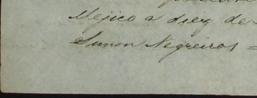 Mejico a diez de
Simon Negreiros